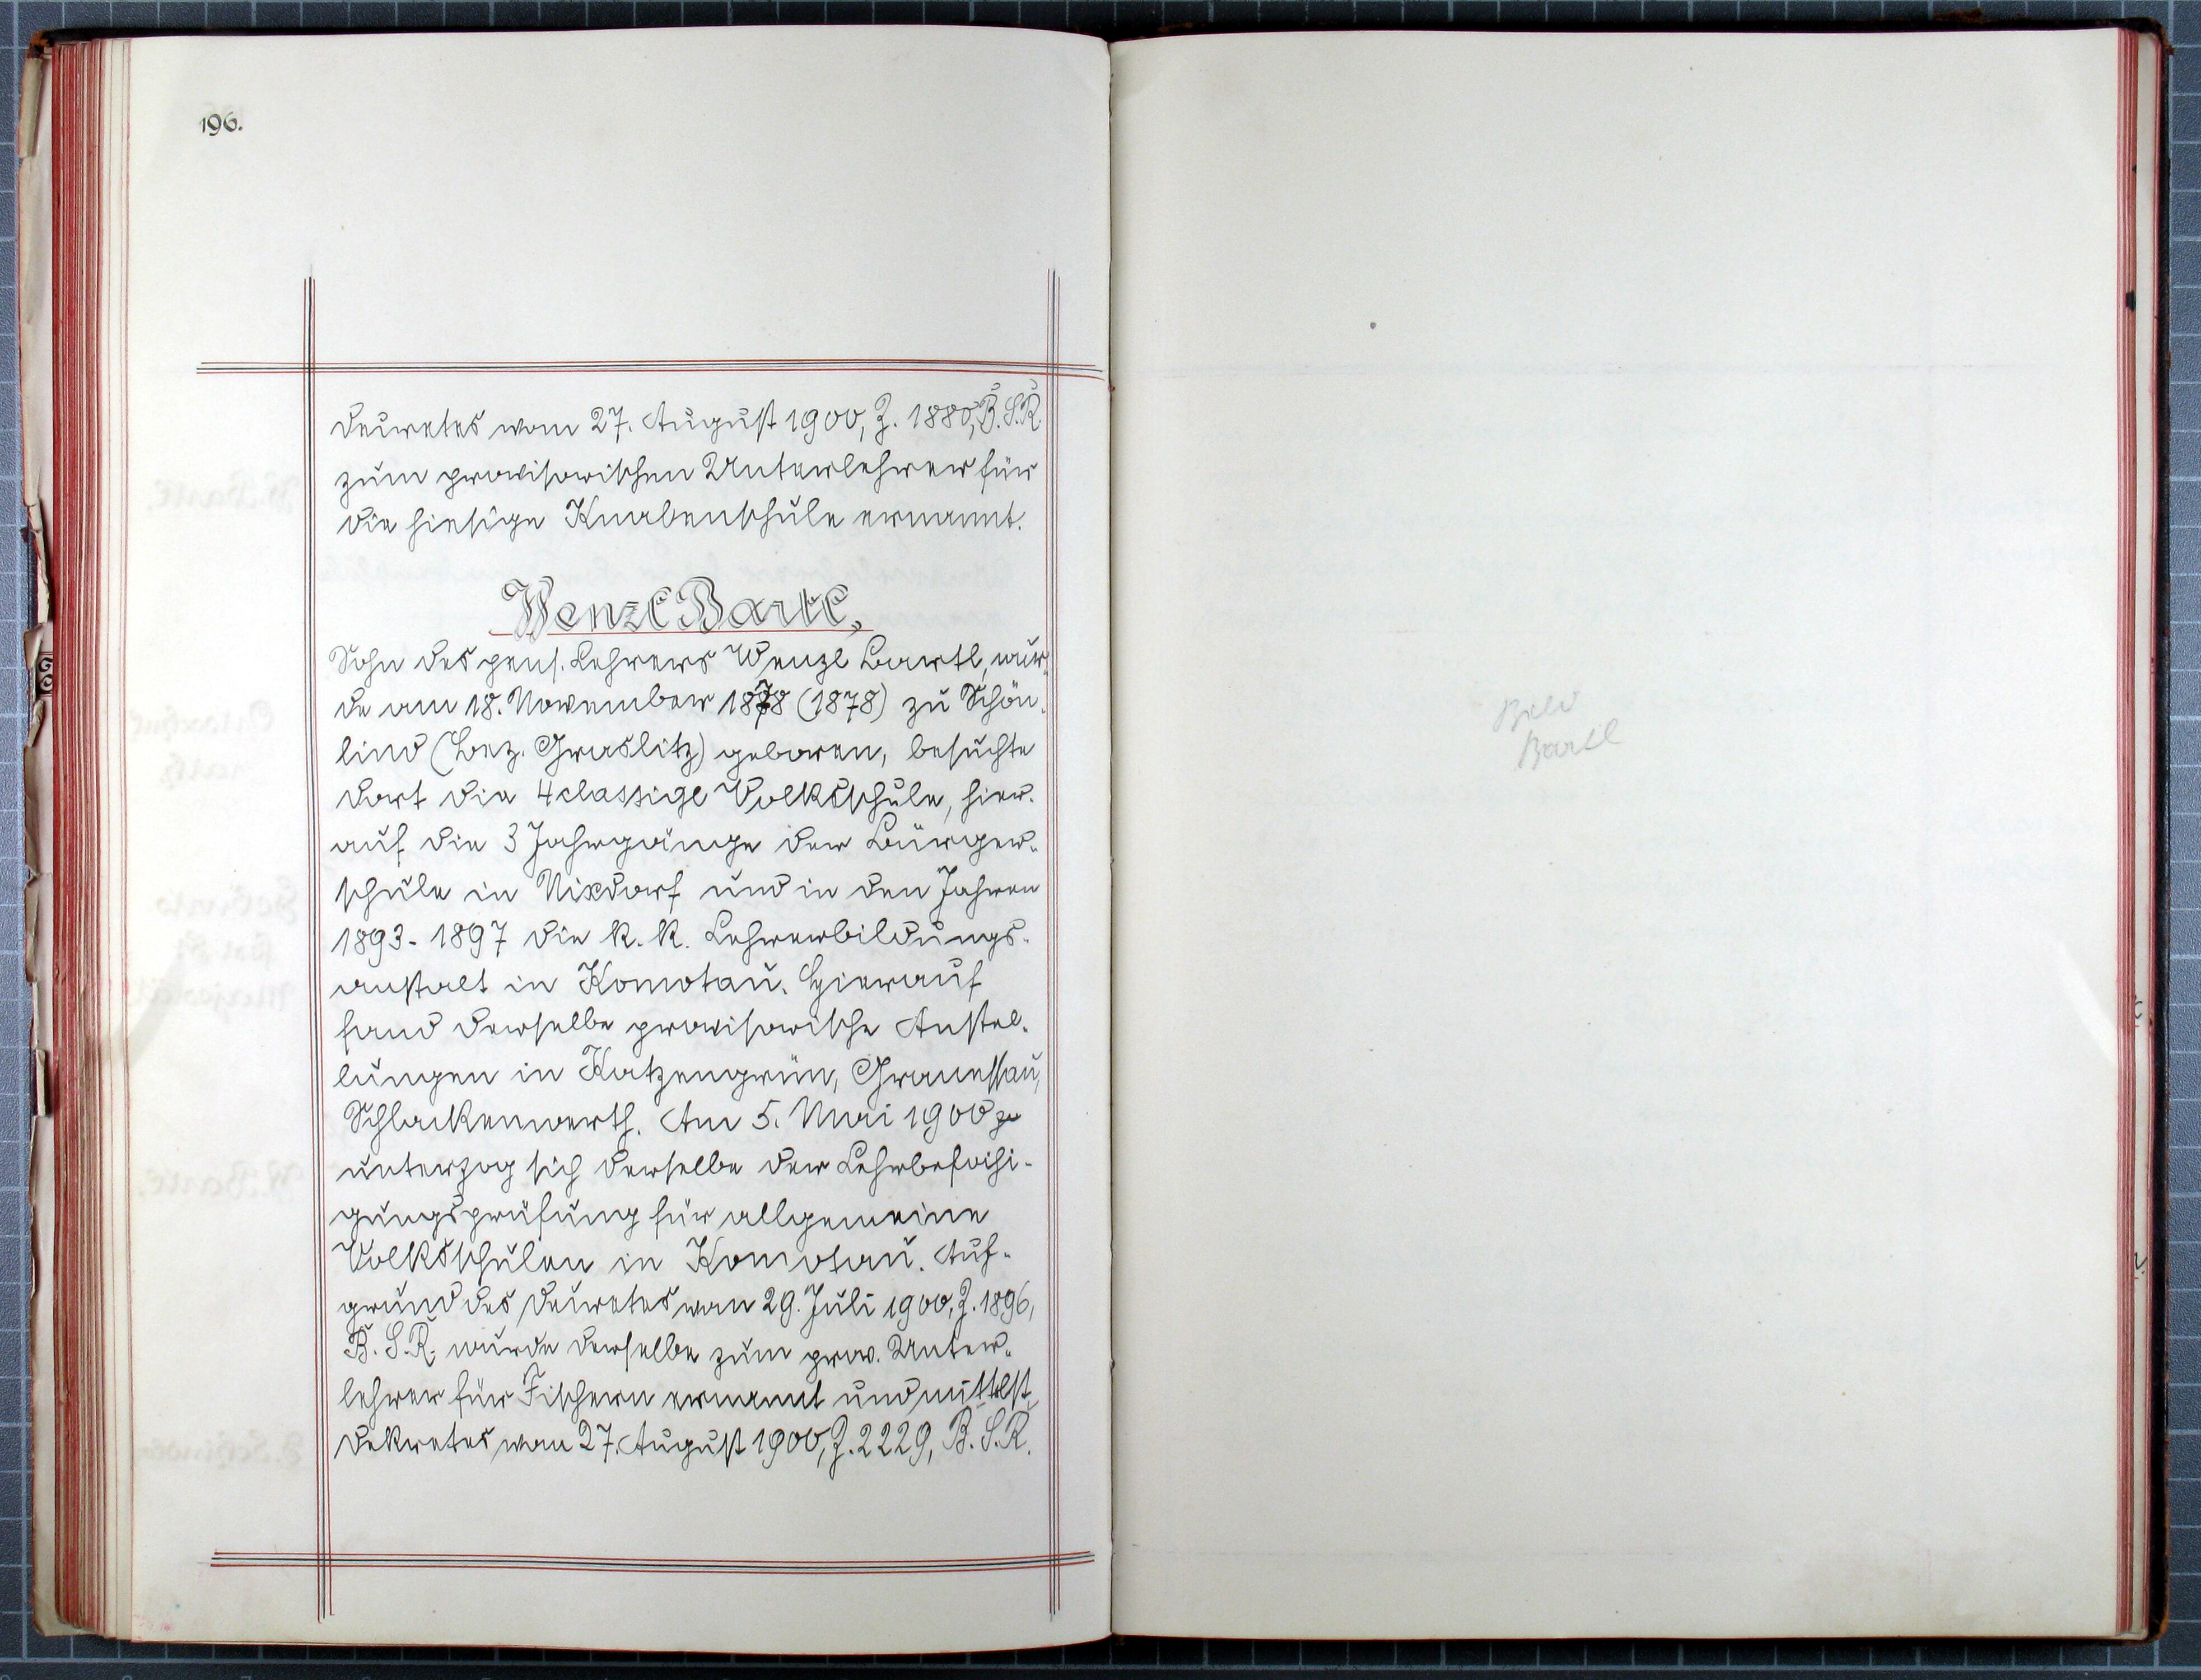 196.
Decretes vom 27. August 1900, Z. 1880, B. S. R.
zum provisorischen Unterlehrer für
die hiesige Knabenschule ernannt.
Wenzl Bartl,
Sohn des pens. Lehrers Wenzl Bartl, wur-
de am 18. November 1878 (1878) zu Schön-
lind (Bez. Graslitz) geboren, besuchte
dort die 4classige Volksschule, hier-
auf die 3 Jahrgänge der Bürger-
schule in Nixdorf und in den Jahren
1893-1897 die k. k. Lehrerbildungs-
anstalt in Komotau. Hierauf
fand derselbe provisorische Anstel-
lungen in Katzengrün, Granessau,
Schlackenwerth. Am 5. Mai 1900
unterzog sich derselbe der Lehrbefähi-
gungsprüfung für allgemeine
Volksschulen in Komotau. Auf-
grund des Decretes vom 29. Juli 1900, Z. 1896,
B. S. R. wurde derselbe zum prov. Unter-
lehrer für Fischern ernannt und mittelst
Dekretes vom 27. August 1900, Z. 2229, B. S. R.
Bild
Bartl